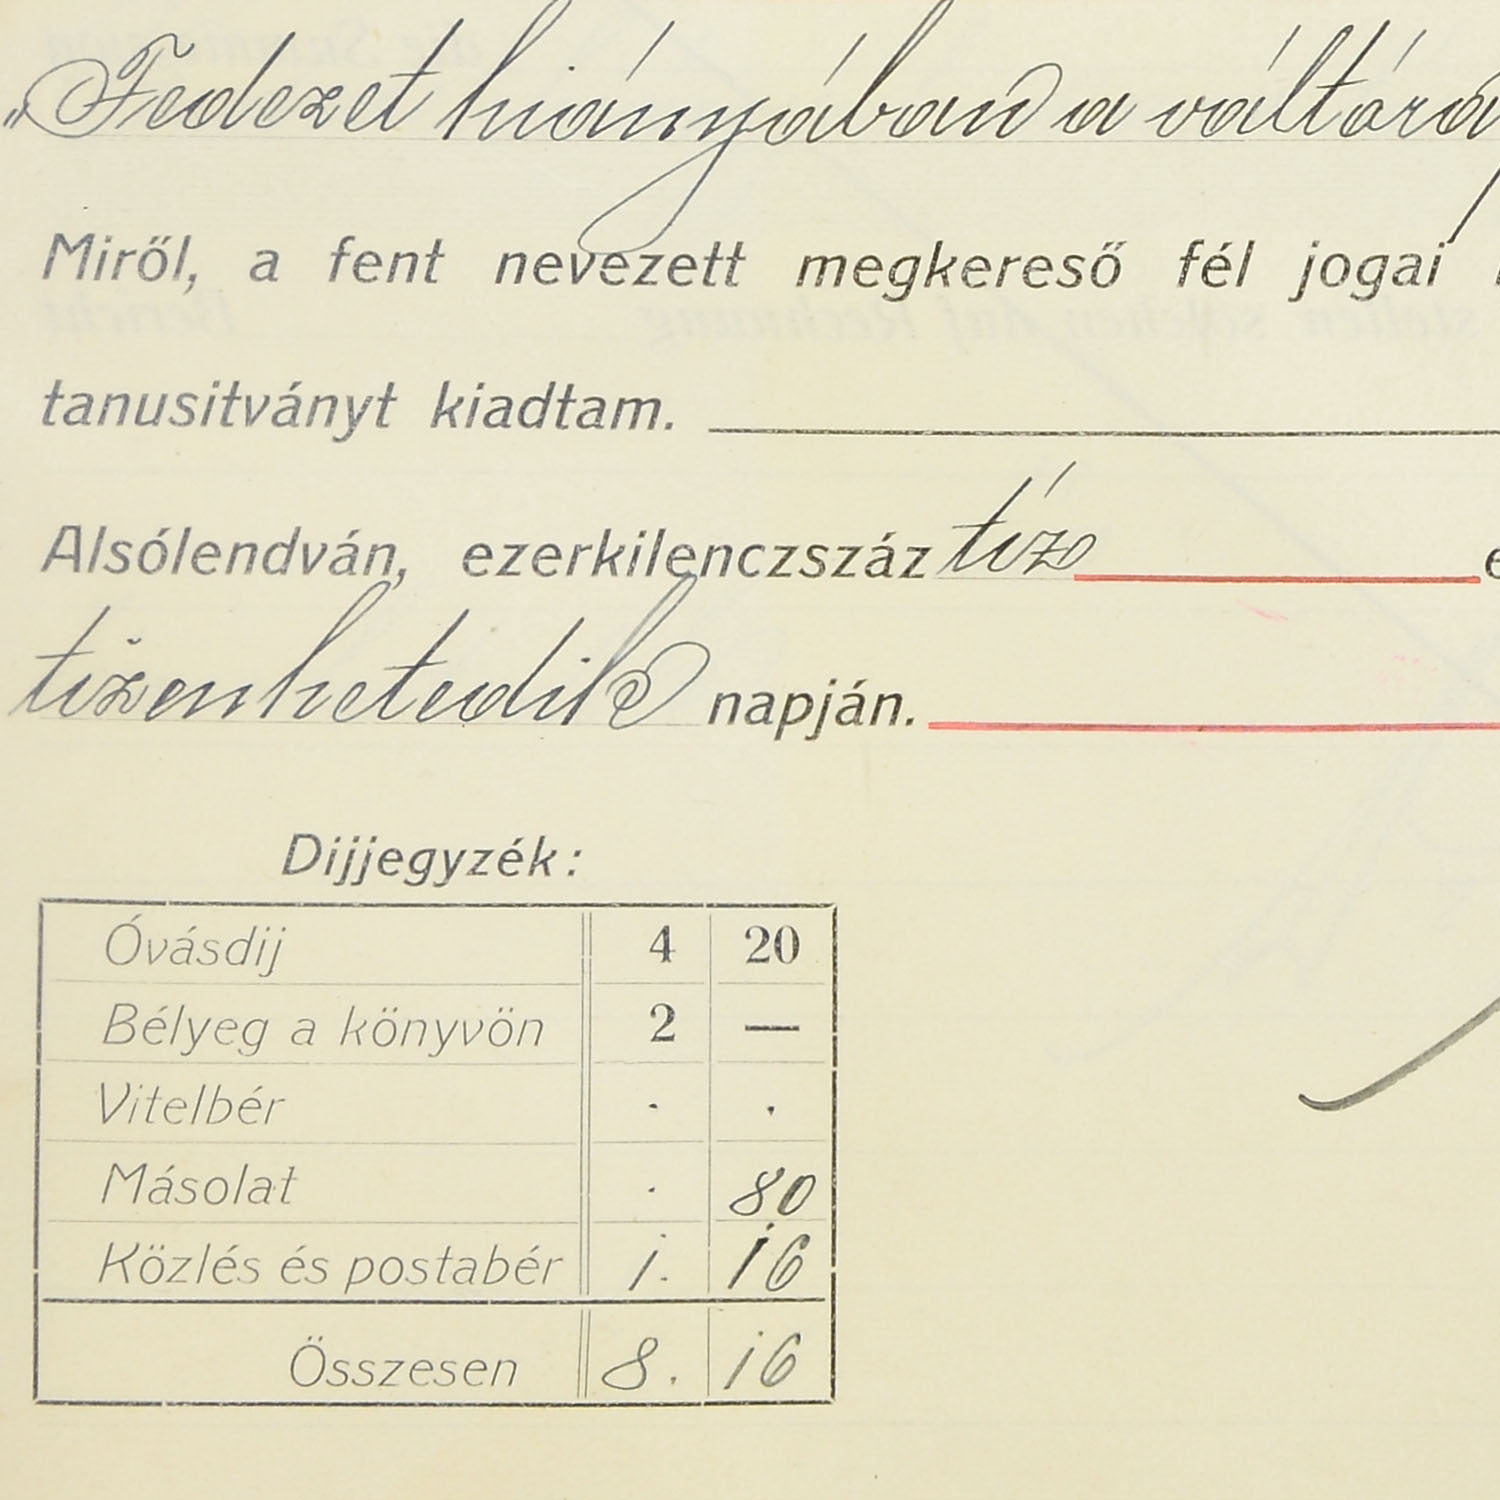 „Fedezet hiányában a váltóra
Miről, a fent nevezett megkereső fél jogai
tanusitványt kiadtam.
Alsólendván, ezerkilenczszáz tíz e
tizenhetedik napján.
Dijjegyzék:
Óvásdij 4 20
Bélyeg a könyvön 2 —
Vitelbér . .
Másolat . 80
Közlés és postabér 1. 16
Összesen 8. 16